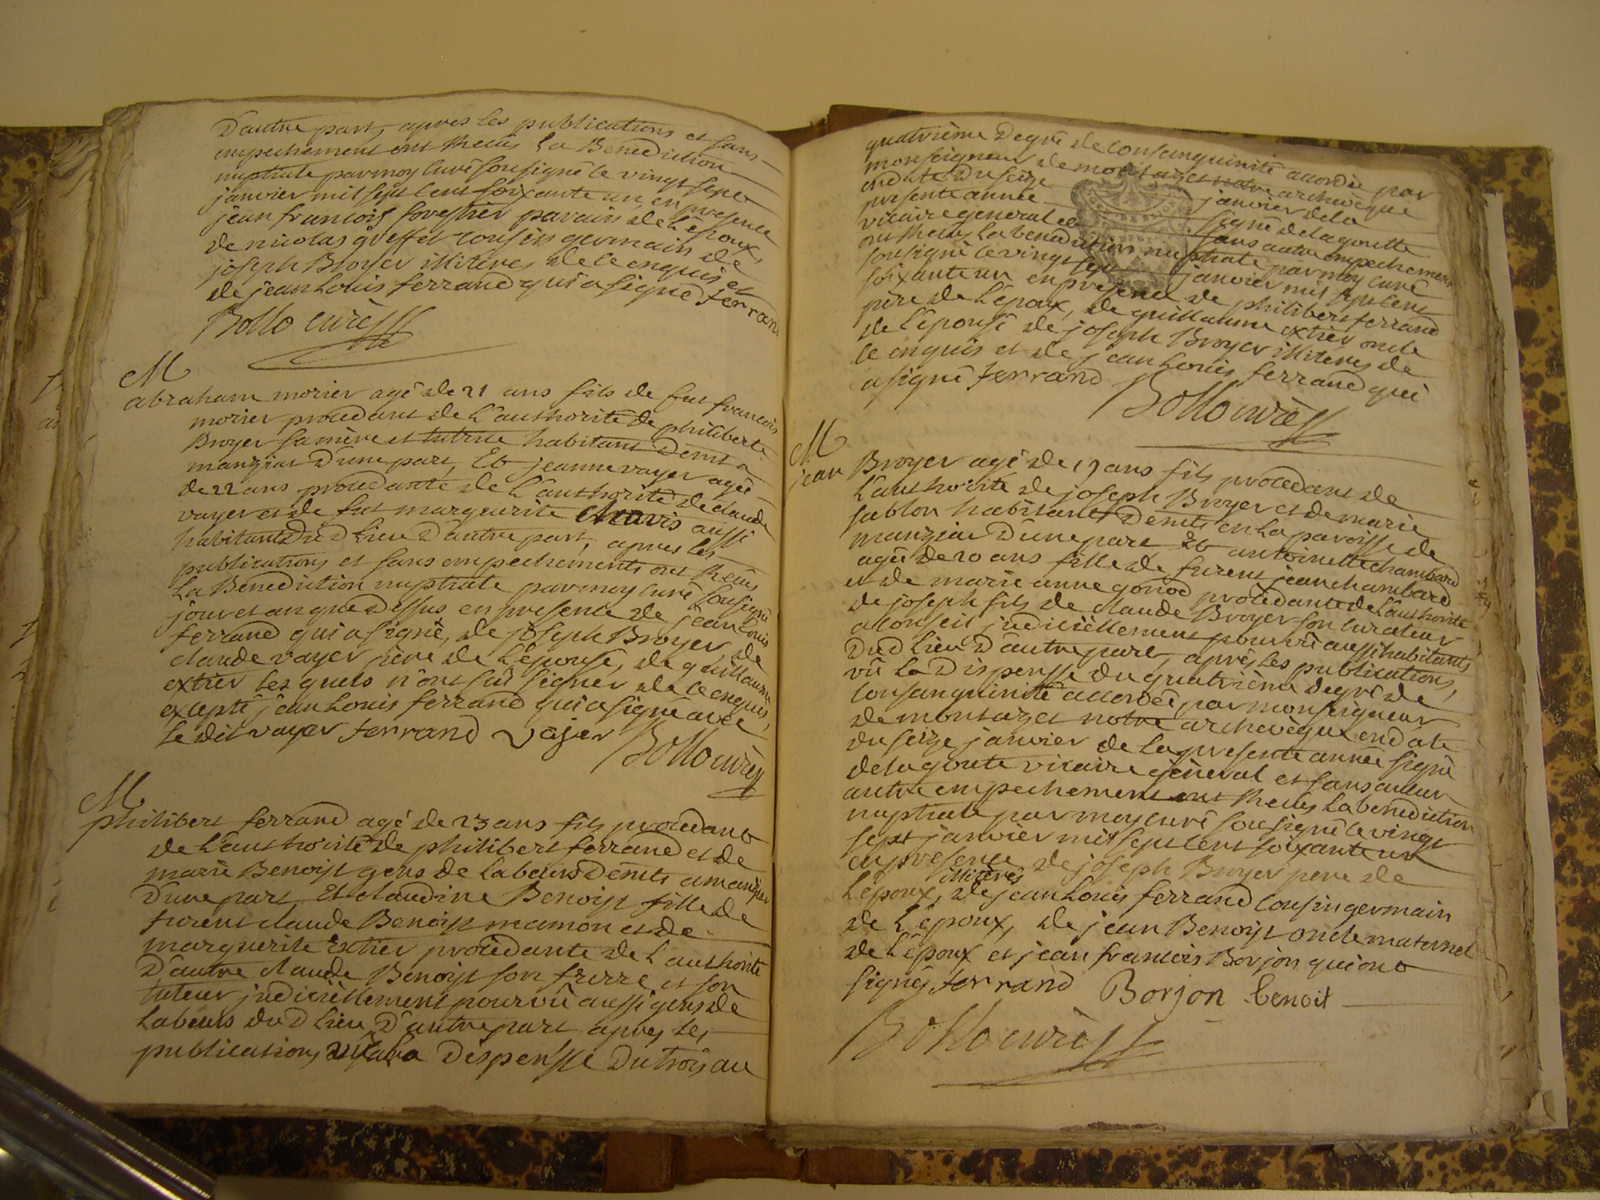 D'autre part, apres les publications et sans
empechement ont Recus La Benediction
nuptiale par moy Curé soussigné le vingt sept
janvier mil sept Cent soixante un en presence
jean francois forestier parain de L'epoux,
de nicolas greffet cousin germain de
joseph Broyer illiteres de ce enquis et
de jean Louis ferrand qui a signé ferrand
Bollo curé
M
abraham morier agé de 21 ans fils de fut francois
morier procedant de L'authorité de philiberte
Broyer sa mère et tutrice habitant dems a
manziat D'une part, Et jeanne vayer agée
de 22 ans procedante de L'authorité de claude
vayer et de fut marguerite Chavis aussi
habitants dud Lieu D'autre part, apres les
publications et sans empechements ont Recus
La Benediction nuptiale par moy Curé soussigné
jour et an que Dessus en presence de jean Louis
ferrand qui a signé, de joseph Broyer de
claude vayer père de L'epouse, de guillaume
extier Lesquels n'ont scu signer de ce enquis,
excepté jean Louis ferrand qui a signé avec
le dit vayer ferrand vajer
Bollo curé
M
philibert ferrand agé de 23 ans fils procedant
de L'authorité de philibert ferrand et de
marie Benoist gens de Labeurs Dems a manziat
D'une part, Et claudine Benoist fille de
furent claude Benoist mamon et de
marguerite Extier procedante de L'authorité
D'autre claude Benoist son frerre et son
tuteur judicièllement pourvû aussi gens de
Labeurs dud Lieu D'autre part apres les
publications Dispensse Du trois au
quatrième Degré de Consanguinité accordée par
monseigneur de montazet notre archeveque
en date Du seize janvier de la
presente année signé delagoutte
vicaire general et sans autre empechement
ont Recus La benediction nuptiale par moy Curé
soussigné le vingt sept janvier mil sept Cent
soixante un en presence de philibert ferrand
père de L'epoux, de guillaume extier oncle
de L'epouse de joseph Broyer illiteres de
ce enquis et de jean Louis ferrand qui
a signé ferrand
Bollo curé
M
jean Broyer agé de 19 ans fils procedant de
L'authorité de joseph Broyer et de marie
sablon habitants Dems en La paroisse de
manziat D'une part Et antoinette chambard
agée de 20 ans fille de furent jean chambard
et de marie anne gonod procedante de L'authorité
de joseph fils de claude Broyer son Curateur
a Conseil judicièllement pourvû aussi habitants
Dud Lieu D'autre part, après Les publications,
vû La Dispensse Du quatrième Degré de
Consanguinité accordée par monseigneur
de montazet notre archevèque en date
du seize janvier de La presente année signé
delagoutte vicaire géneral et sans aucun
autre empechement ont Recus La benediction
nuptiale par moy curé soussigné le vingt
sept janvier mil sept Cent soixante un
en presence de joseph Broyer pere de
L'epoux, illiterés de jean Louis ferrand Cousin germain
de L'epoux, de jean Benoist oncle maternel
de L'epoux et jean francois Borjon qui ont
signés ferrand Borjon benoit
Bollo curé